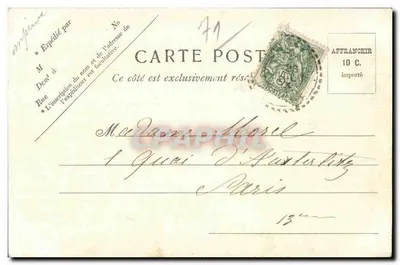 71
N°
* Expédié par
M
Demt à
Rue
* L'inscription du nom et de l'adresse de
l'expéditeur est facultative.
CARTE POST
Ce côté est exclusivement rése
AFFRANCHIR
10 C.
importé
Madame Morel
1 Quai d'Austerlitz
Paris
13me